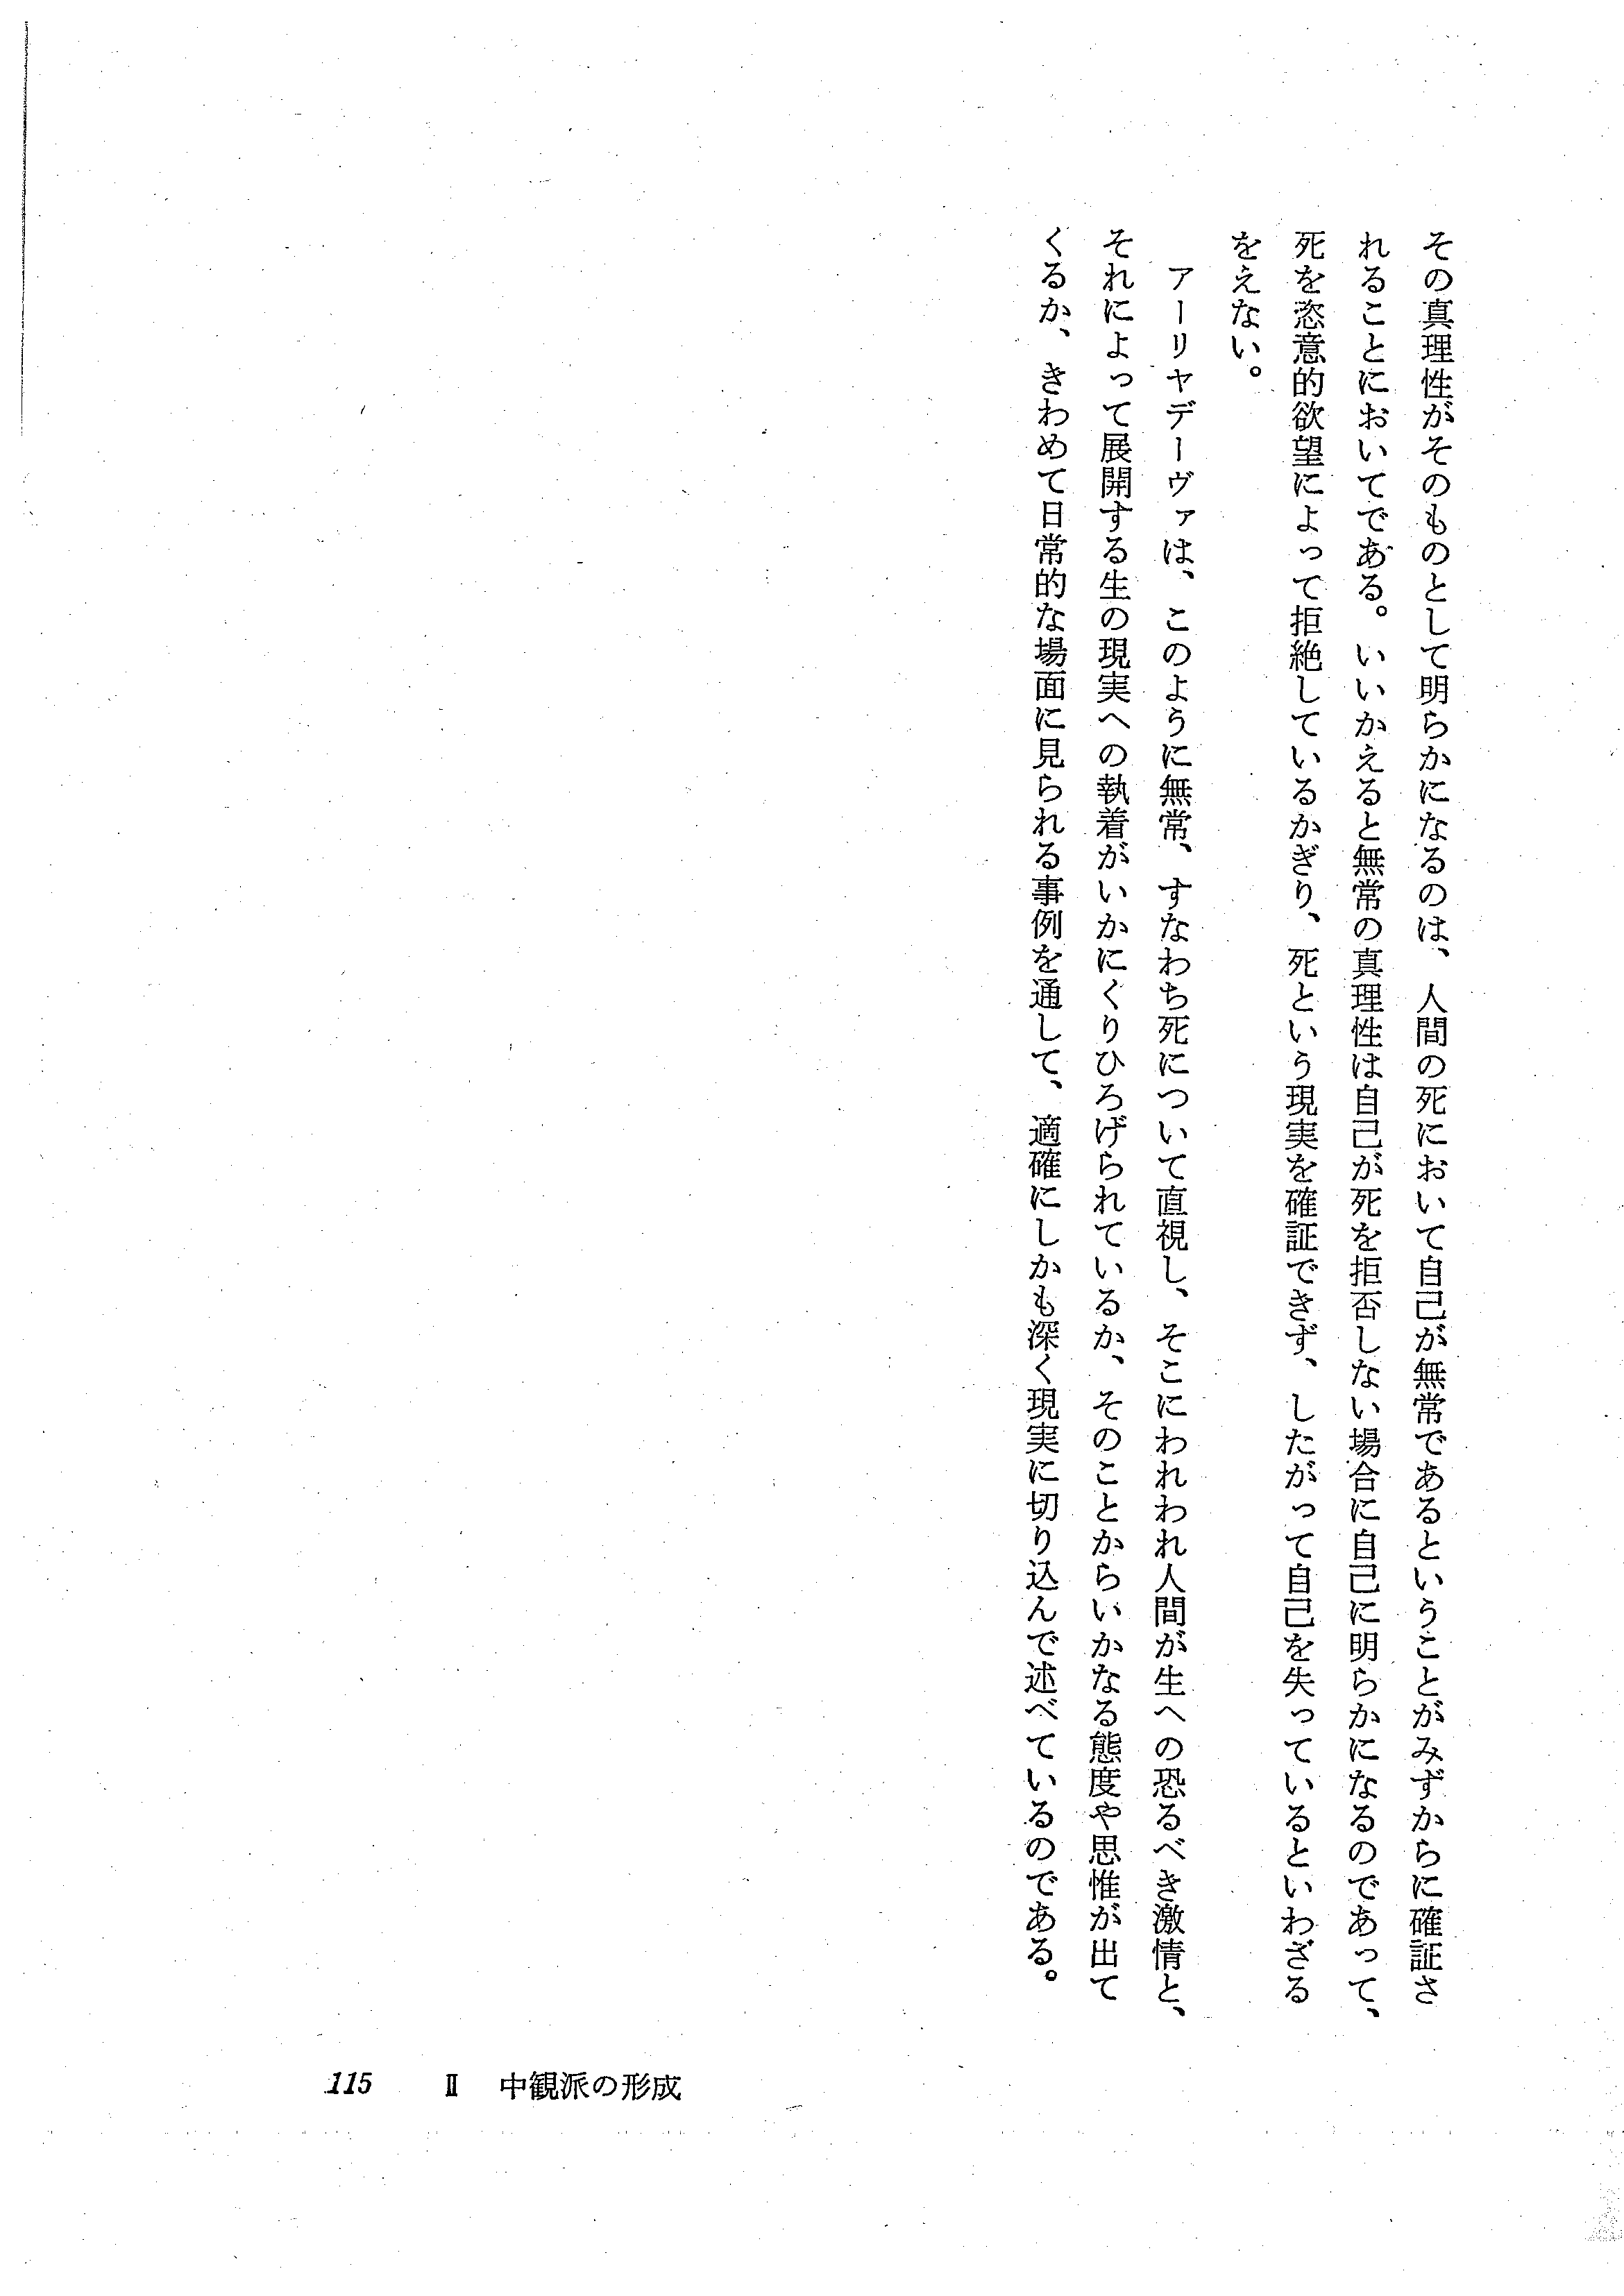 その真理性がそのものとして明らかになるのは、人間の死において自己が無常であるということがみずからに確証さ
れることにおいてである。いいかえると無常の真理性は自己が死を拒否しない場合に自己に明らかになるのであって、
死を恣意的欲望によって拒絶しているかぎり、死という現実を確証できず、したがって自己を失っているといわざる
をえない。
アーリヤデーヴァは、このように無常、すなわち死について直視し、そこにわれわれ人間が生への恐るべき激情と、
それによって展開する生の現実への執着がいかにくりひろげられているか、そのことからいかなる態度や思惟が出て
くるか、きわめて日常的な場面に見られる事例を通して、適確にしかも深く現実に切り込んで述べているのである。
115 Ⅱ 中観派の形成